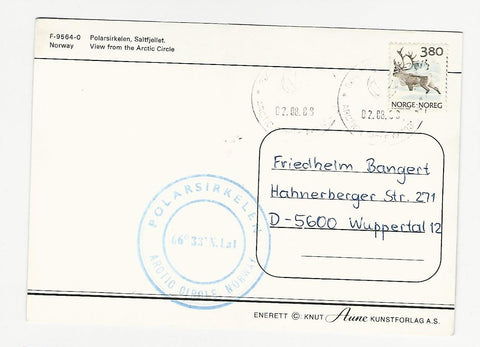 F-9564-0 Polarsirkelen, Saltfjellet.
Norway View from the Arctic Circle
380
NORGE·NOREG
02.08.88
02.08.88
Friedhelm Bangert
Hahnerberger Str. 271
D-5600 Wuppertal 12
POLARSIRKELEN
66° 33' N. Lat
ARCTIC CIRCLE NORWAY
ENERETT © KNUT Aune KUNSTFORLAG A.S.